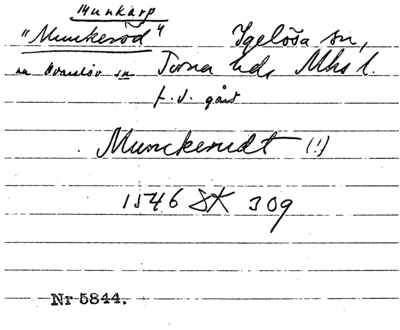 Munkarp
"Munkeröd" Igelösa sn,
nu Odarslöv sn Torna hd. Mhs l.
f. d. gård
Munckerudt (!)
1546 SK 309
Nr 5844.